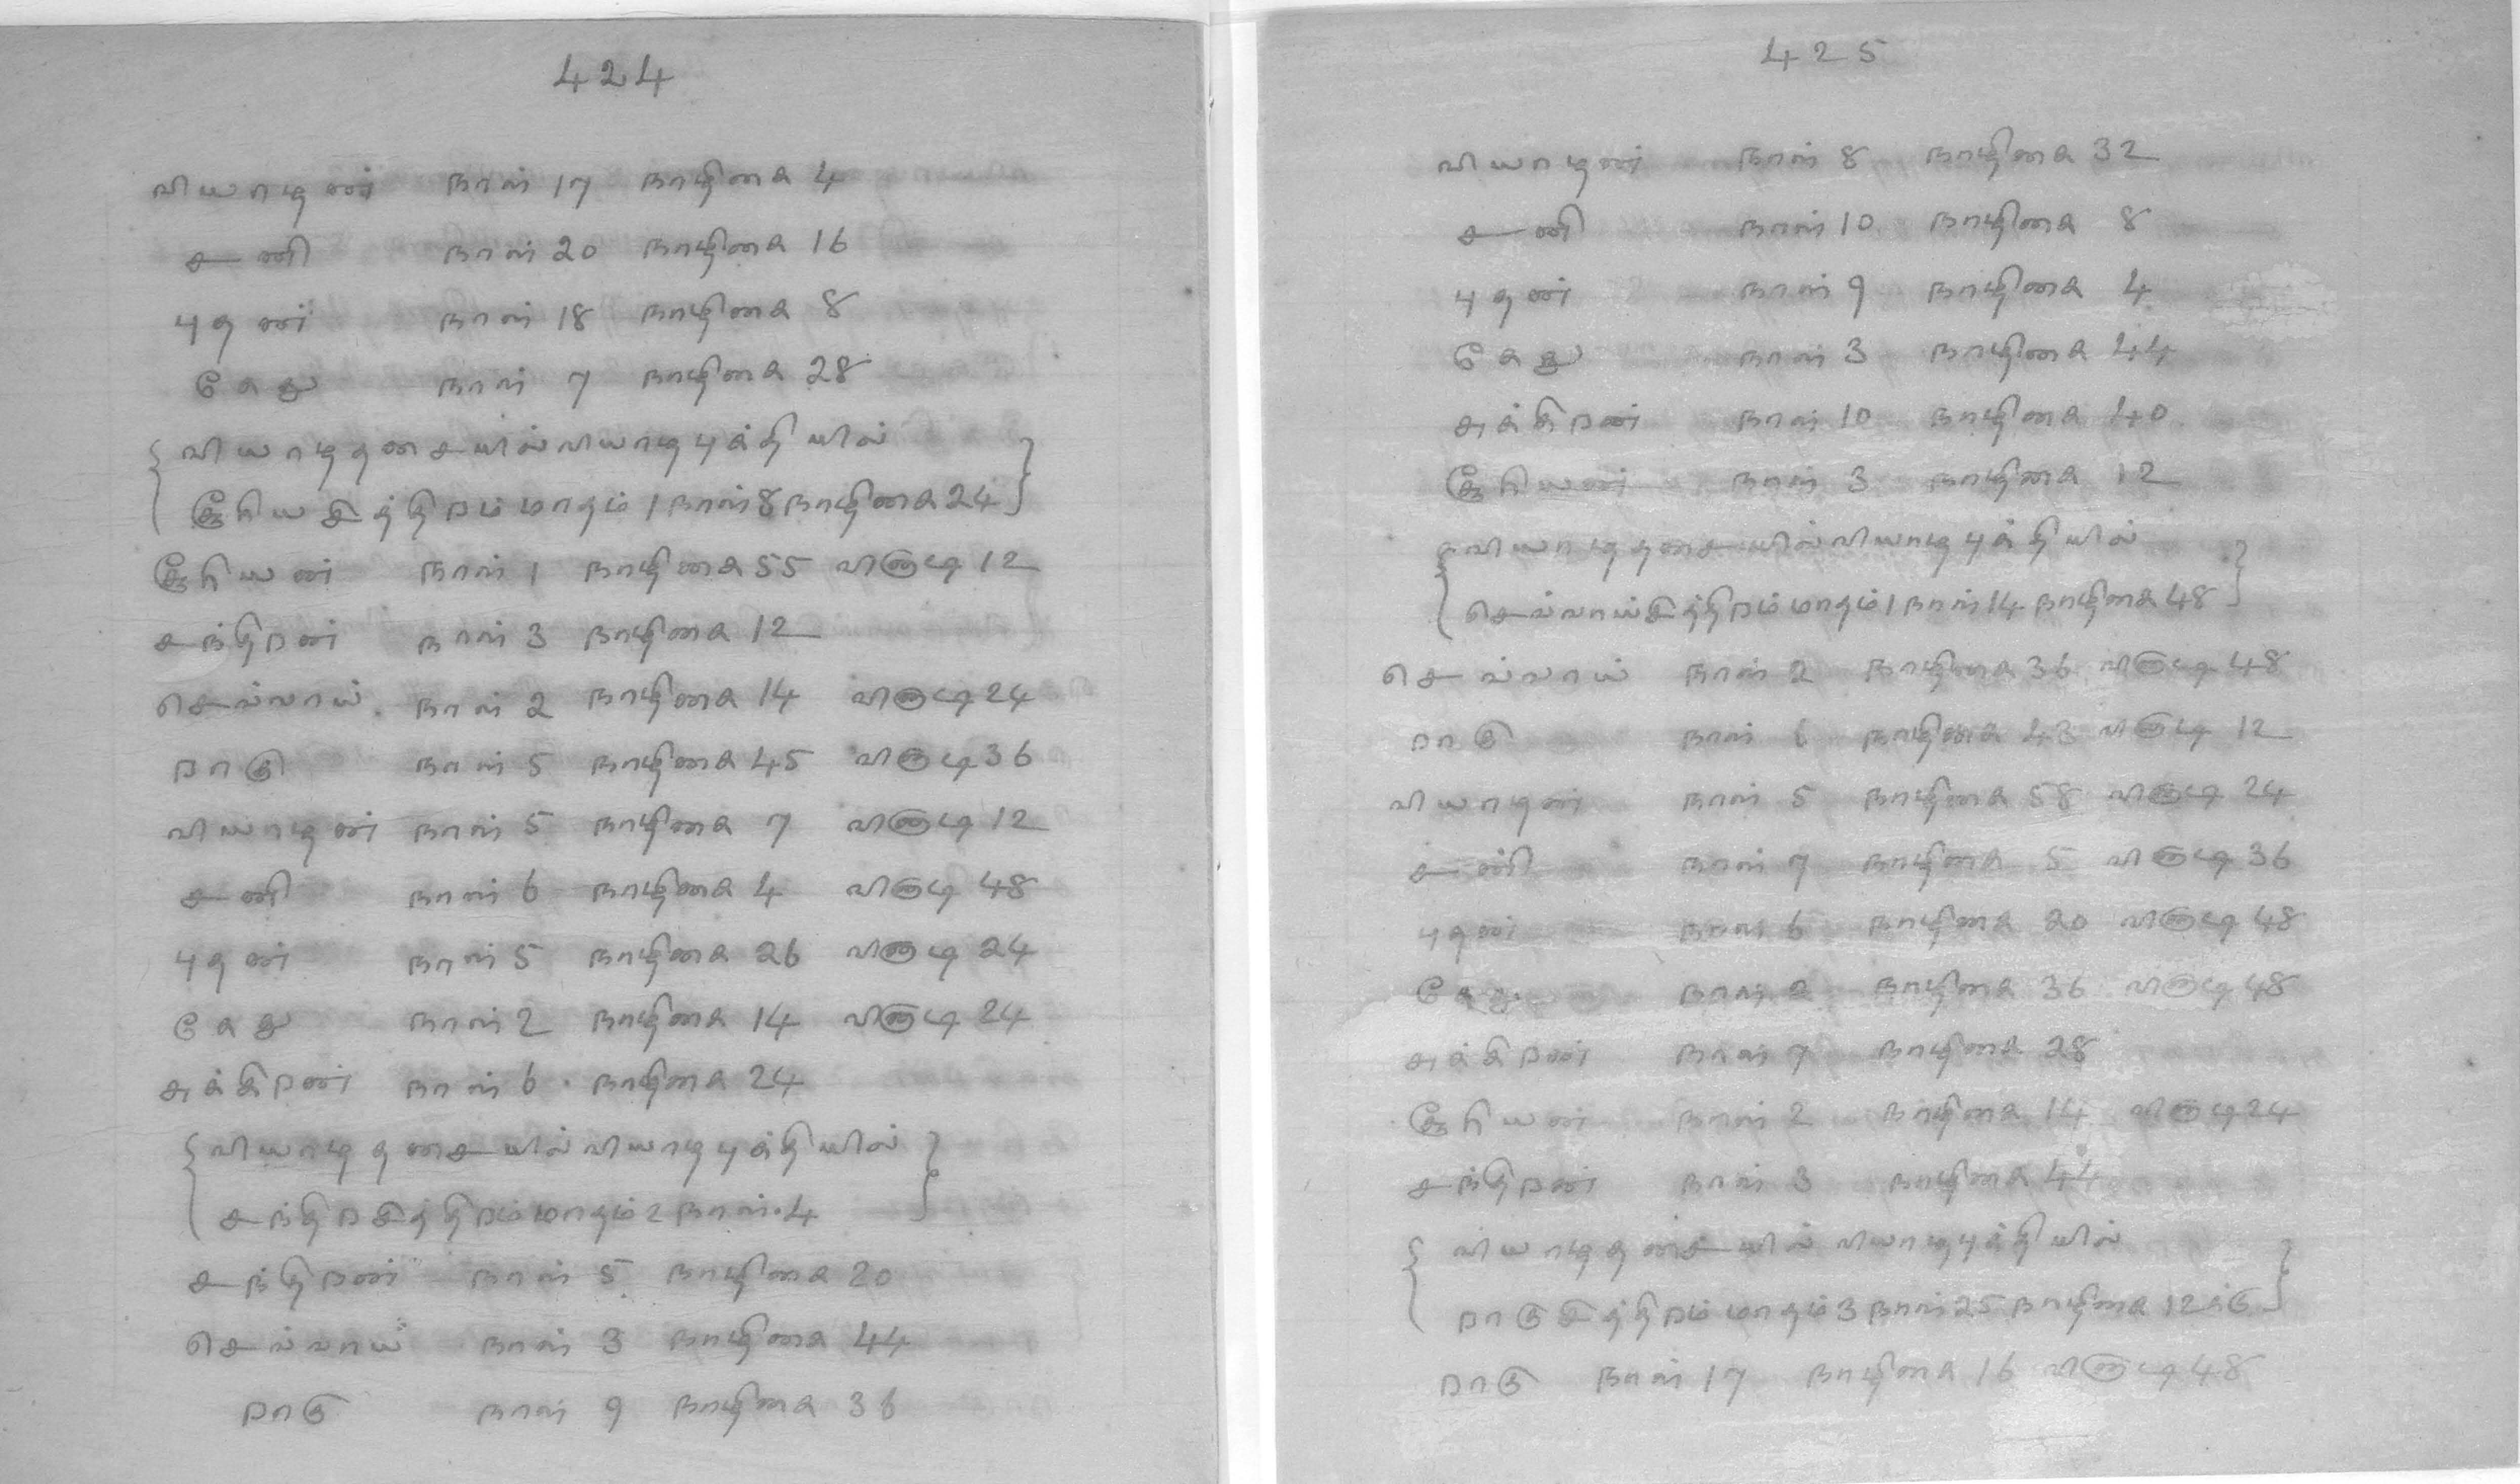 424
வியாழன் நாள் 17 நாழிகை 4
சனி நாள் 20 நாழிகை 16
புதன் நாள் 18 நாழிகை 8
கேது நாள் 7 நாழிகை 28
வியாழதசையில் வியாழபுக்தியில்
சூரியசித்திரம் மாதம் 1 நாள் 8 நாழிகை 24
சூரியன் நாள் 1 நாழிகை 55 விநாடி 12
சந்திரன் நாள் 3 நாழிகை 12
செவ்வாய் நாள் 2 நாழிகை 14 விநாடி 24
ராகு நாள் 5 நாழிகை 45 விநாடி 36
வியாழன் நாள் 5 நாழிகை 7 விநாடி 12
சனி நாள் 6 நாழிகை 4 விநாடி 48
புதன் நாள் 5 நாழிகை 26 விநாடி 24
கேது நாள் 2 நாழிகை 14 விநாடி 24
சுக்கிரன் நாள் 6 நாழிகை 24
வியாழதசையில் வியாழபுக்தியில்
சந்திரசித்திரம் மாதம் 2 நாள் 4
சந்திரன் நாள் 5 நாழிகை 20
செவ்வாய் நாள் 3 நாழிகை 44
ராகு நாள் 9 நாழிகை 36
425
வியாழன் நாள் 8 நாழிகை 32
சனி நாள் 10 நாழிகை 8
புதன் நாள் 9 நாழிகை 4
கேது நாள் 3 நாழிகை 44
சுக்கிரன் நாள் 10 நாழிகை 40
சூரியன் நாள் 3 நாழிகை 12
வியாழதசையில் வியாழபுக்தியில்
செவ்வாய்சித்திரம் மாதம் 1 நாள் 14 நாழிகை 48
செவ்வாய் நாள் 2 நாழிகை 36 விநாடி 48
ராகு நாள் 6 நாழிகை 43 விநாடி 12
வியாழன் நாள் 5 நாழிகை 58 விநாடி 24
சனி நாள் 7 நாழிகை 5 விநாடி 36
புதன் நாள் 6 நாழிகை 20 விநாடி 48
கேது நாள் 2 நாழிகை 36 விநாடி 48
சுக்கிரன் நாள் 7 நாழிகை 28
சூரியன் நாள் 2 நாழிகை 14 விநாடி 24
சந்திரன் நாள் 3 நாழிகை 44
வியாழதசையில் வியாழபுக்தியில்
ராகுசித்திரம் மாதம் 3 நாள் 25 நாழிகை 12க்கு
ராகு நாள் 17 நாழிகை 16 விநாடி 48